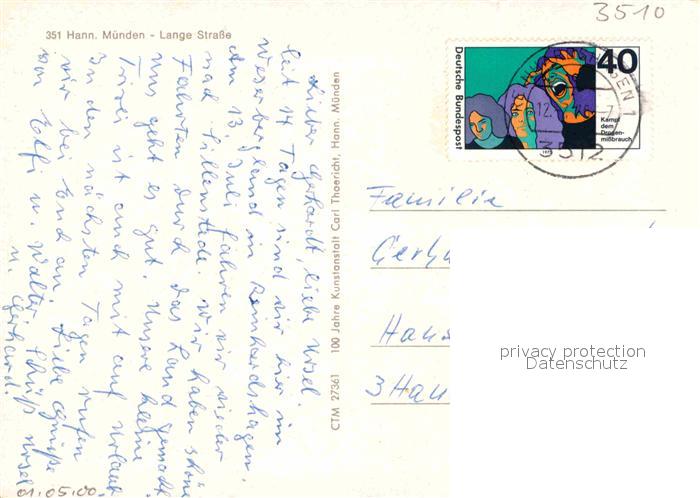 3510
351 Hann. Münden - Lange Straße
Lieber Gerhardt, liebe Ursel.
Seit 14 Tagen sind wir hier im
Weserbergland in Reinhardshagen.
Am 13. Juli fahren wir wieder
nach Sillenstede. Wir haben schöne
Fahrten durch das Land gemacht
uns geht es gut. Unsere kleine
ist auch mit auf Urlaub
In den nächsten Tagen rufen
wir bei Euch an. Liebe Grüße
von Elfi u. Walter Schüß Ursel
u. Gerhard.
01.05.00
CTM 27361 100 Jahre Kunstanstalt Carl Thoericht, Hann. Münden
Deutsche Bundespost
40
Kampf
dem
Drogen-
mißbrauch
1975
12.
3512
Familie
Gerh
Hans
3 Han
privacy protection
Datenschutz